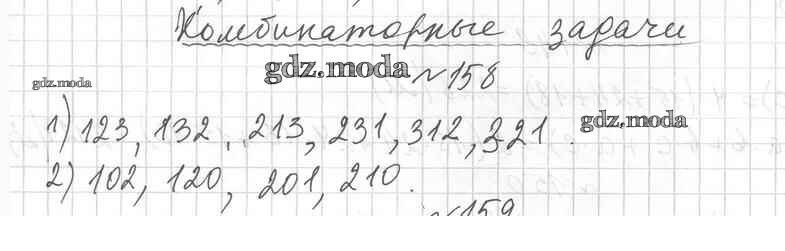 Комбинаторные задачи
gdz.moda №158
gdz.moda
1) 123, 132, 213, 231, 312, 321. gdz.moda
2) 102, 120, 201, 210.
№159